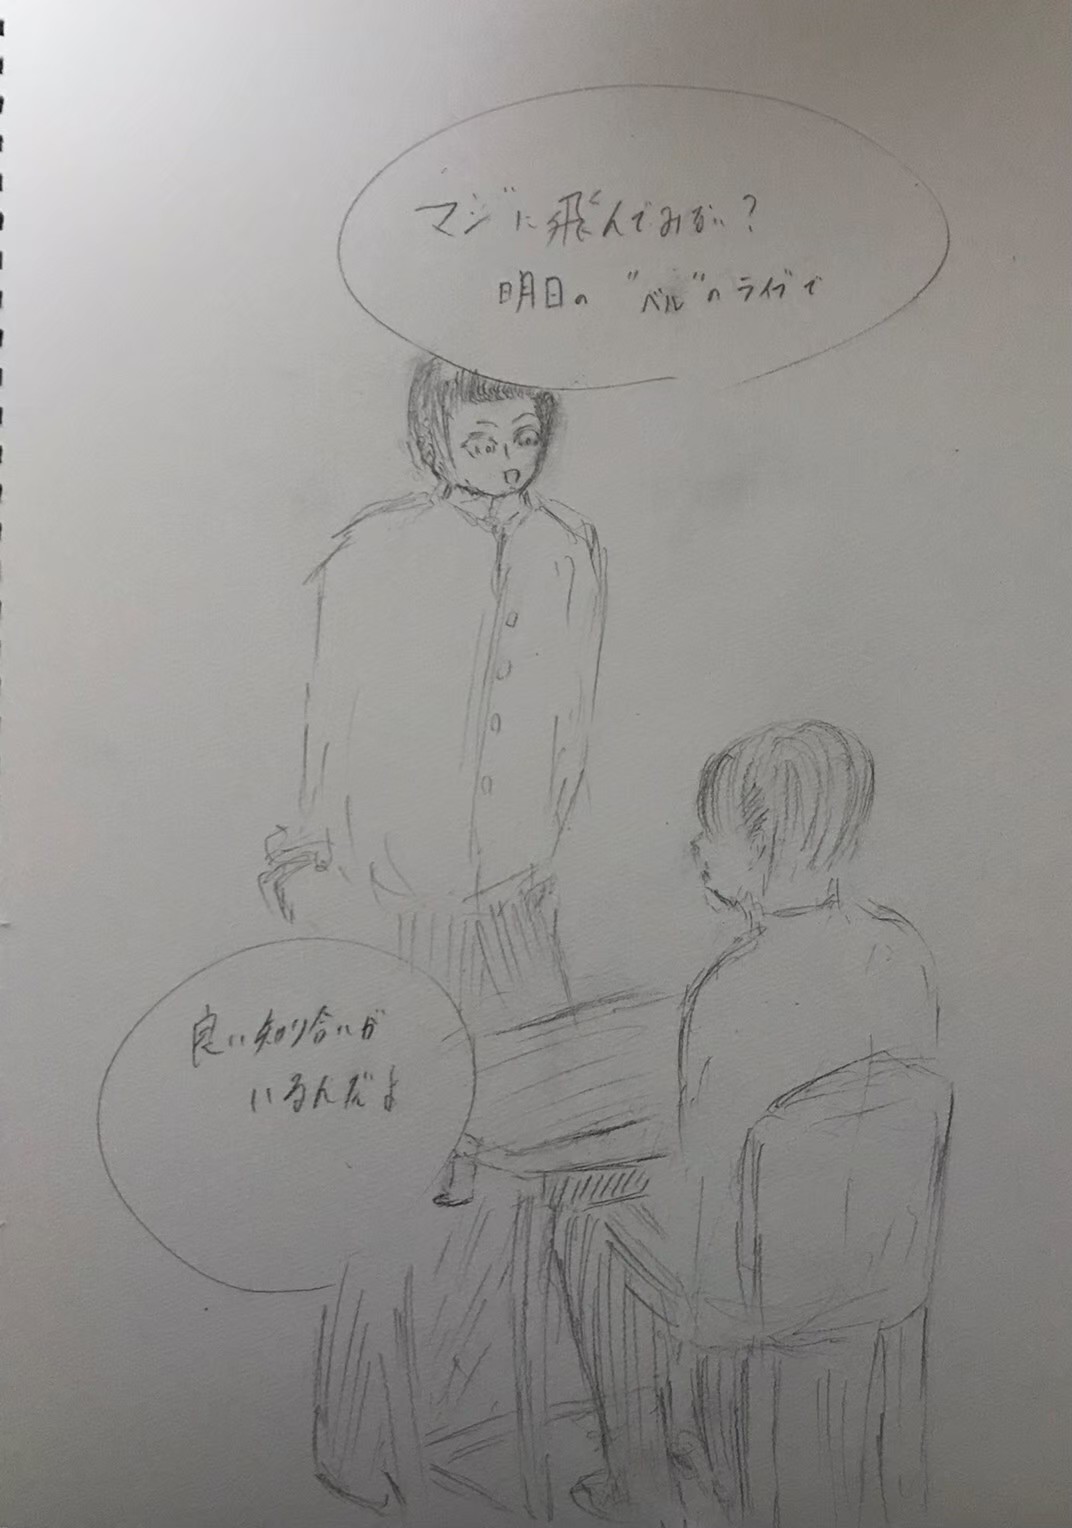 マジに飛んでみない?
明日の "ベル"のライブで
良い知り合いが
いるんだよ